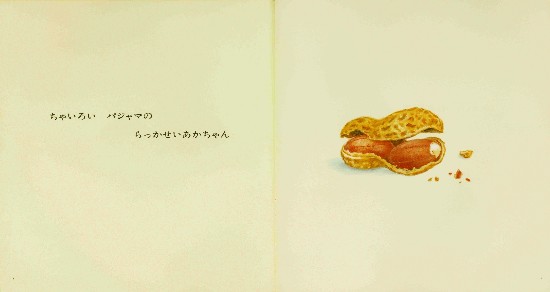 ちゃいろい　パジャマの
らっかせいあかちゃん